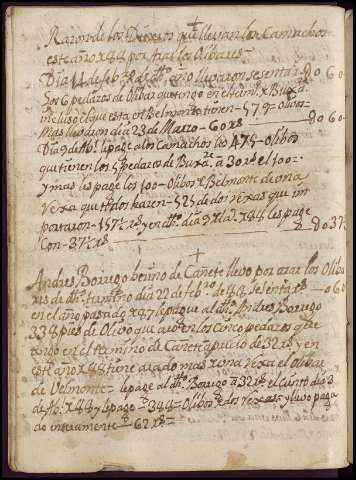 Razon de los Dineros que llevan los Camachos
este año x 88 por arar los Olibares
Dia 14 de feb. de dho. año lleparon sesenta rs 060
Dos 6 pedazos de Olibar que tengo en el term. x Bux.
incluso el que esta en Belmonte tienen 579 olivos
Mas llevaron dia 23 de Marzo 60 rs 060
Dia 9 de Ab. le page a los Camachos los 475 olibos
que tienen los 5 pedazos de Bux. a 30 rs el 100
y mas les page los 100 Olibos x Belmonte de una
vexa que todos hazen 525 de dos vexas que im
portaron 157 rs y en dho. dia 9 x Ab. x 88 les page
con 37 rs 037
Andres Borrego bezino de Cañete llevo por arar los Oliba
res de dho. termino dia 22 de feb. de 88 sesenta rs 060
en el año pasado x 87 le page al dho. Andres Borrego
338 pies de Olivo que aró en los cinco pedazos que
tengo en el termino de Cañete a precio de 32 rs y en
este año x 88 tiene arado mas xuna vexa el Olibar
de Velmonte le page al dho. Borrego a 32 rs el ciento dia 3
de Ab. x 88 y le page 348 Olibos de dos vexas y llevo paga
do interamente 62 rs